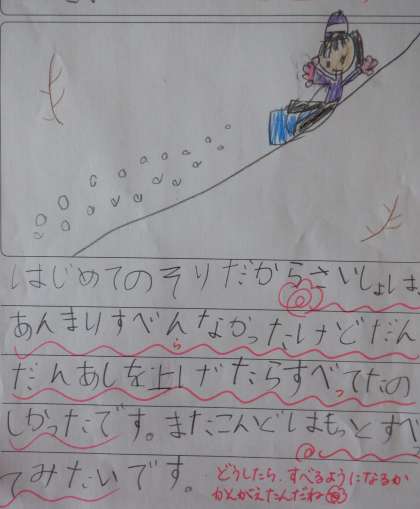 はじめてのそりだからさいしょは
あんまりすべんなかったけどだん
ら
だんあしを上げたらすべってたの
しかったです。またこんどはもっとすべっ
てみたいです。
どうしたら、すべるようになるか
かんがえたんだね